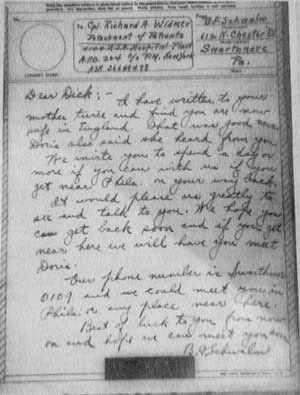 To Cpl. Richard A. Widmer
Detachment of Patients
U.S. Hospital Plant
A.P.O. 204 c/o P.M. New York
B.F. Schwalm
612 N. Chester Rd
Swarthmore
Pa.
CENSOR'S STAMP
Dear Dick: -
I have written to your
mother twice and find you are now
safe in England. That was good news
Doris also said she heard from you
We invite you to spend a day or
more if you can with us if you
get near Phila. on your way back.
It would please us greatly to
see and talk to you. We hope you
can get back soon and if you get
near here we will have you meet
Doris.
Our phone number is Swarthmore
0109 and we could meet you in
Phila or any place near here.
Best of luck to you from now
on and hope we can meet you soon
B.F. Schwalm